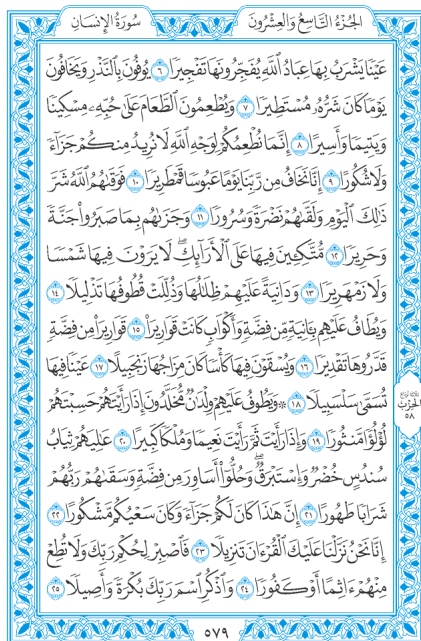 الجُزْءُ التَّاسِعُ وَالعِشْرُونَ
سُورَةُ الإِنسَانِ
عَيْنًا يَشْرَبُ بِهَا عِبَادُ ٱللَّهِ يُفَجِّرُونَهَا تَفْجِيرًا ٦ يُوفُونَ بِٱلنَّذْرِ وَيَخَافُونَ
يَوْمًا كَانَ شَرُّهُۥ مُسْتَطِيرًا ٧ وَيُطْعِمُونَ ٱلطَّعَامَ عَلَىٰ حُبِّهِۦ مِسْكِينًا
وَيَتِيمًا وَأَسِيرًا ٨ إِنَّمَا نُطْعِمُكُمْ لِوَجْهِ ٱللَّهِ لَا نُرِيدُ مِنكُمْ جَزَآءً
وَلَا شُكُورًا ٩ إِنَّا نَخَافُ مِن رَّبِّنَا يَوْمًا عَبُوسًا قَمْطَرِيرًا ١٠ فَوَقَىٰهُمُ ٱللَّهُ شَرَّ
ذَٰلِكَ ٱلْيَوْمِ وَلَقَّىٰهُمْ نَضْرَةً وَسُرُورًا ١١ وَجَزَىٰهُم بِمَا صَبَرُوا۟ جَنَّةً
وَحَرِيرًا ١٢ مُّتَّكِـِٔينَ فِيهَا عَلَى ٱلْأَرَآئِكِ ۖ لَا يَرَوْنَ فِيهَا شَمْسًا
وَلَا زَمْهَرِيرًا ١٣ وَدَانِيَةً عَلَيْهِمْ ظِلَٰلُهَا وَذُلِّلَتْ قُطُوفُهَا تَذْلِيلًا ١٤
وَيُطَافُ عَلَيْهِم بِـَٔانِيَةٍ مِّن فِضَّةٍ وَأَكْوَابٍ كَانَتْ قَوَارِيرَا۠ ١٥ قَوَارِيرَا۟ مِن فِضَّةٍ
قَدَّرُوهَا تَقْدِيرًا ١٦ وَيُسْقَوْنَ فِيهَا كَأْسًا كَانَ مِزَاجُهَا زَنجَبِيلًا ١٧ عَيْنًا فِيهَا
تُسَمَّىٰ سَلْسَبِيلًا ١٨ ۞ وَيَطُوفُ عَلَيْهِمْ وِلْدَٰنٌ مُّخَلَّدُونَ إِذَا رَأَيْتَهُمْ حَسِبْتَهُمْ
لُؤْلُؤًا مَّنثُورًا ١٩ وَإِذَا رَأَيْتَ ثَمَّ رَأَيْتَ نَعِيمًا وَمُلْكًا كَبِيرًا ٢٠ عَٰلِيَهُمْ ثِيَابُ
سُندُسٍ خُضْرٌ وَإِسْتَبْرَقٌ ۖ وَحُلُّوٓا۟ أَسَاوِرَ مِن فِضَّةٍ وَسَقَىٰهُمْ رَبُّهُمْ
شَرَابًا طَهُورًا ٢١ إِنَّ هَٰذَا كَانَ لَكُمْ جَزَآءً وَكَانَ سَعْيُكُم مَّشْكُورًا ٢٢
إِنَّا نَحْنُ نَزَّلْنَا عَلَيْكَ ٱلْقُرْءَانَ تَنزِيلًا ٢٣ فَٱصْبِرْ لِحُكْمِ رَبِّكَ وَلَا تُطِعْ
مِنْهُمْ ءَاثِمًا أَوْ كَفُورًا ٢٤ وَٱذْكُرِ ٱسْمَ رَبِّكَ بُكْرَةً وَأَصِيلًا ٢٥
الحِزْب
٥٨
٥٧٩